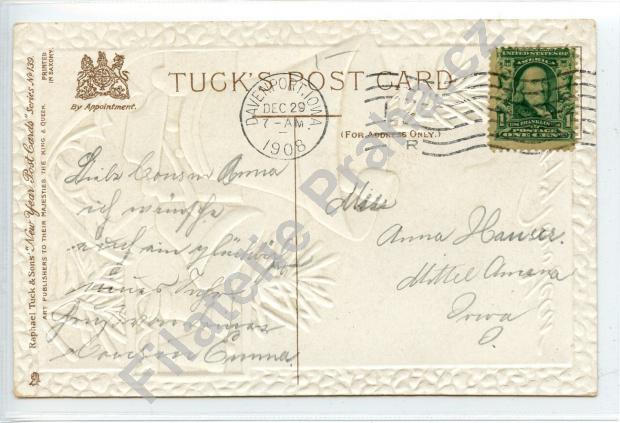 TUCK'S POST CARD
By Appointment.
(FOR ADDRESS ONLY.)
Raphael Tuck & Sons' "New Year Post Cards" Series No 139.
ART PUBLISHERS TO THEIR MAJESTIES THE KING & QUEEN.
PRINTED
IN SAXONY.
DAVENPORT, IOWA.
DEC 29
7-AM
1908
R
UNITED STATES OF
AMERICA
1 1
POSTAGE
ONE CENT
Liebe Cousine Anna
ich wünsche
auch ein
neues Jahr
von
Emma
Miss
Anna Hauser.
Mittel Amana
Iowa
Filatelie Praha.cz